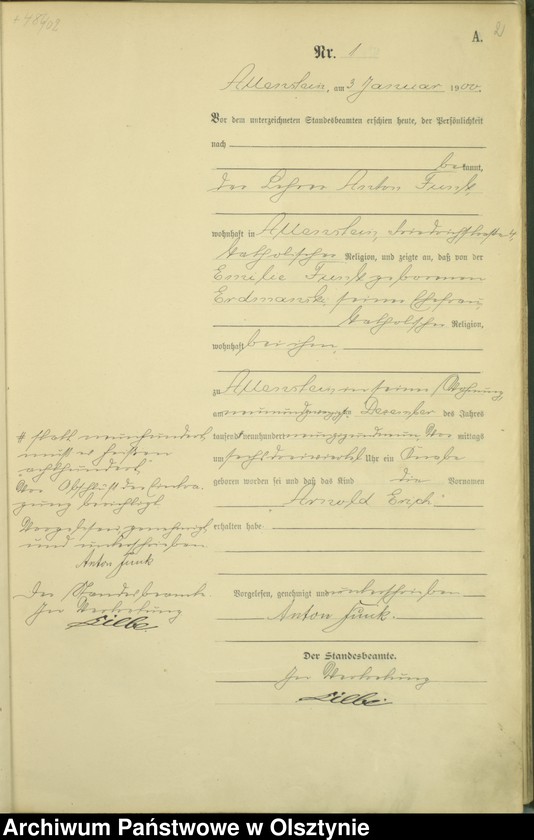 +48402
2
A.
Nr. 1
Allenstein, am 3 Januar 1900.
Vor dem unterzeichneten Standesbeamten erschien heute, der Persönlichkeit
nach
bekannt,
der Lehrer Anton Funk,
wohnhaft in Allenstein, Friedrichstraße
katholischer Religion, und zeigte an, daß von der
Emilie Funk geborenen
Erdmanski seiner Ehefrau,
katholischer Religion,
wohnhaft bei ihm,
zu Allenstein in seiner Wohnung
am neunundzwanzigsten Dezember des Jahres
tausend neunhundert neunzig und neun Vormittags
um sechs dreiviertel Uhr ein Knabe
geboren worden sei und daß das Kind die Vornamen
Arnold Erich
erhalten habe.
Vorgelesen, genehmigt und unterschrieben
Anton Funk.
Der Standesbeamte.
In Vertretung
Lilbe
# statt neunhundert
muß es heißen
achthundert
Vor Abschluß der Eintra-
gung berichtigt
Vorgelesen, genehmigt
und unterschrieben
Anton Funk
Der Standesbeamte
In Vertretung
Lilbe
Archiwum Państwowe w Olsztynie